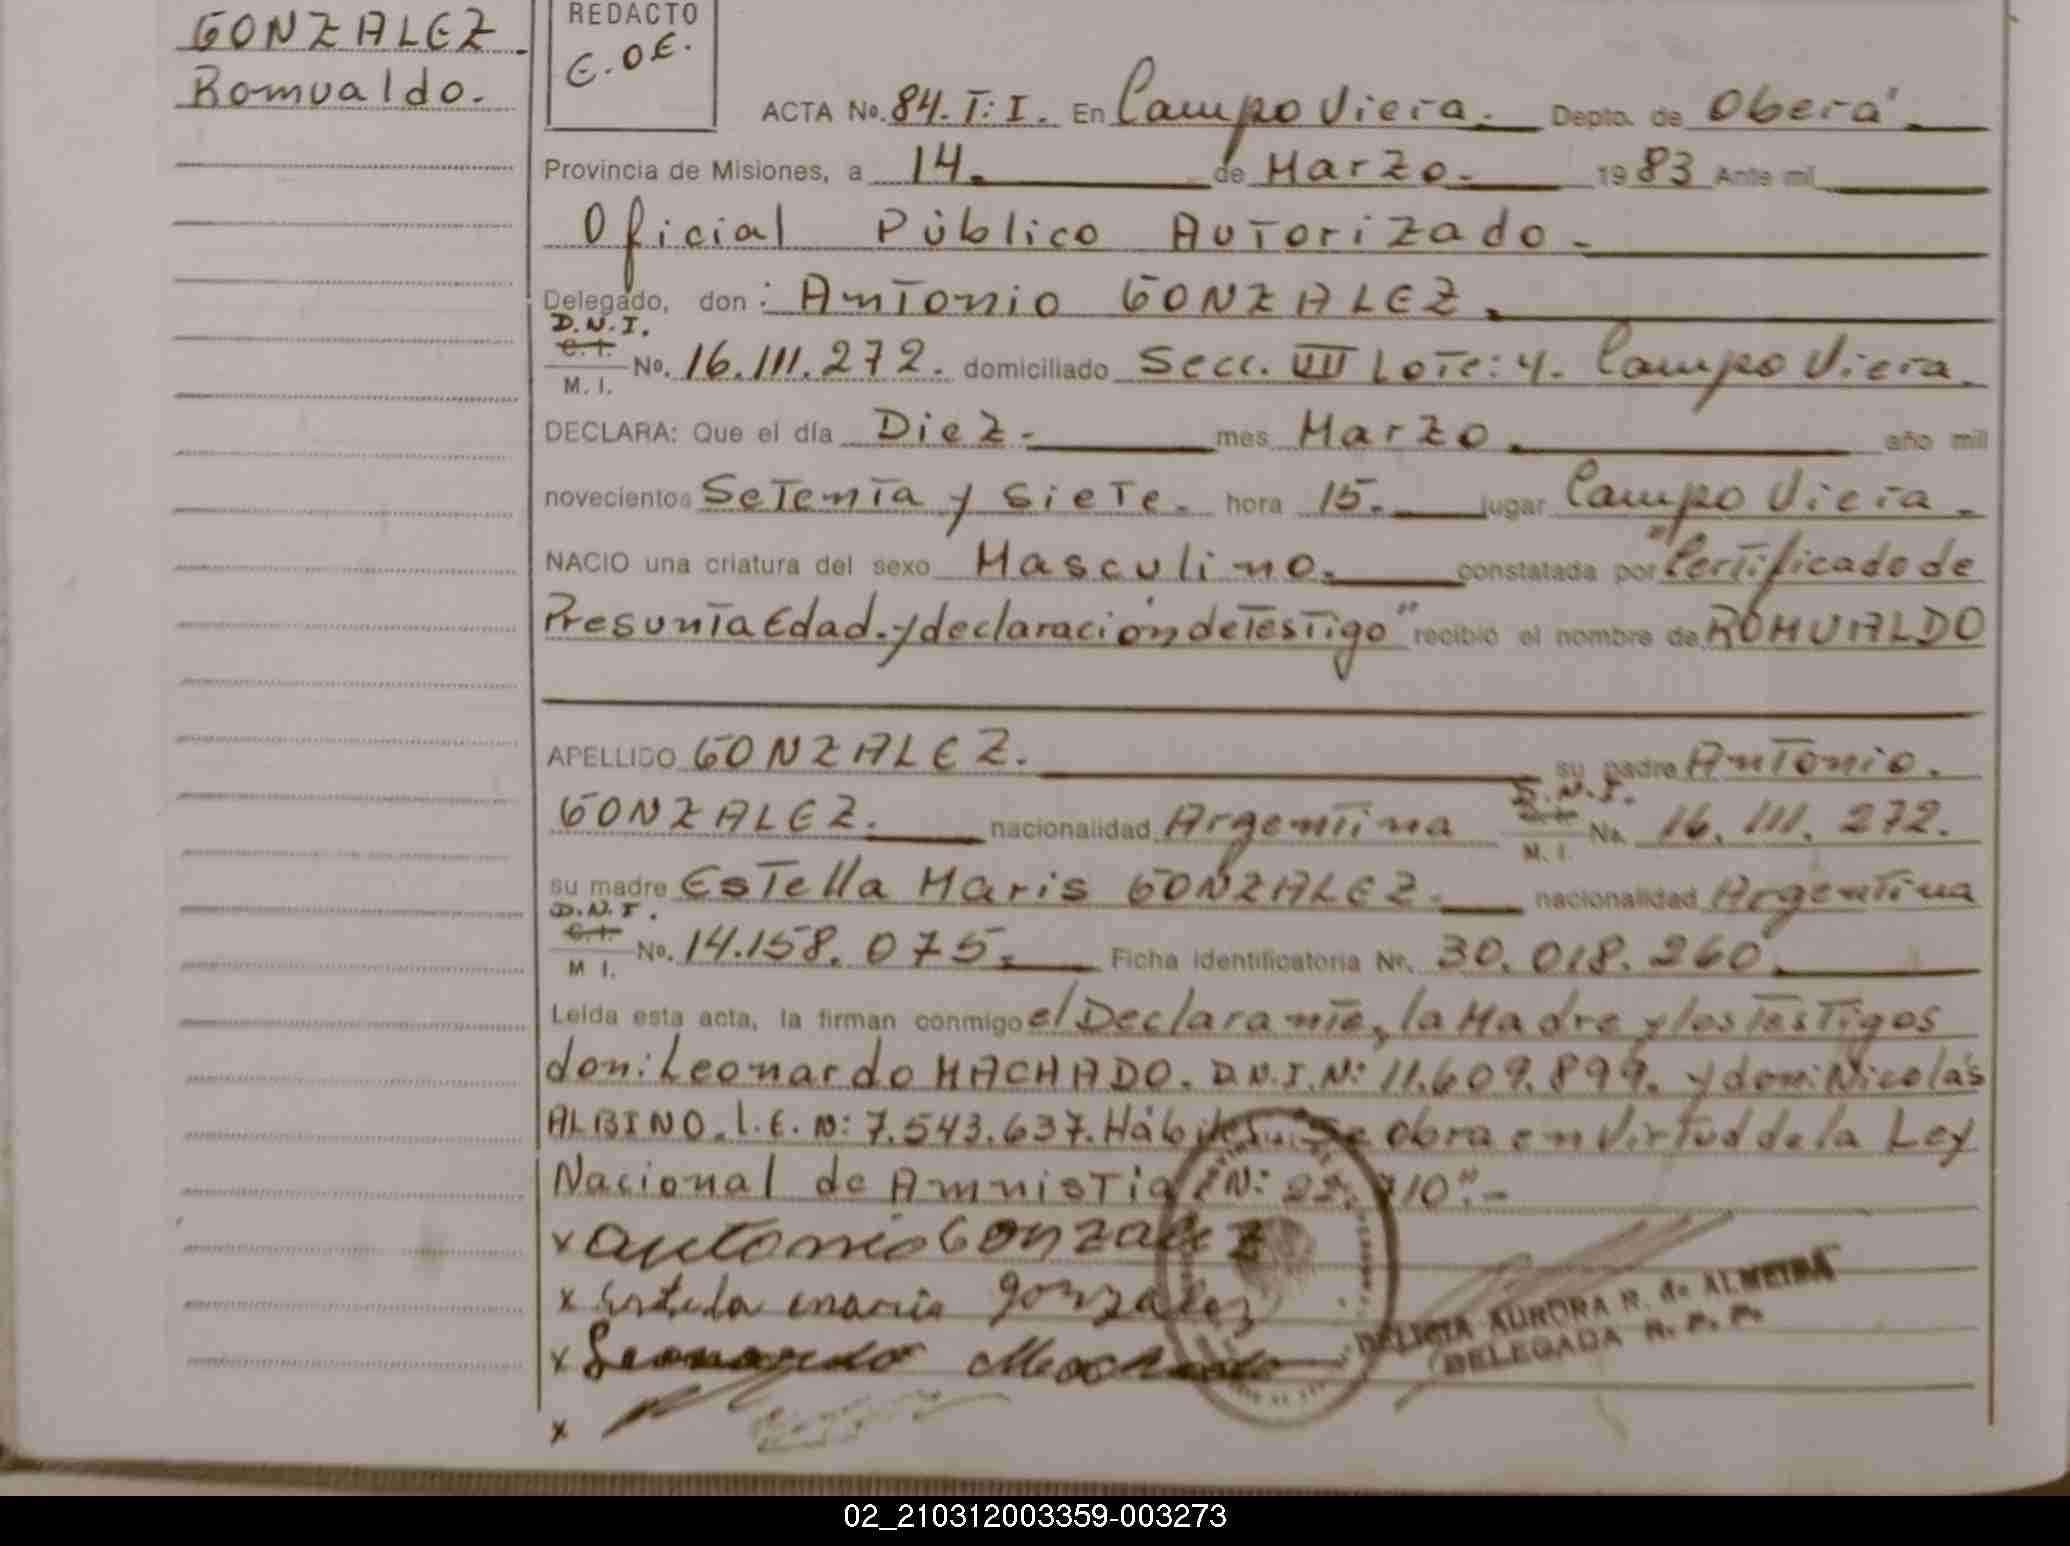 GONZALEZ
Romualdo.
REDACTO
E.OE.
ACTA No. 84. T: I. En Campo Viera. Depto. de Oberá.
Provincia de Misiones, a 14. de Marzo. 1983 Ante mi
Oficial Público Autorizado.
Delegado, don: Antonio GONZALEZ.
D.N.I.
C.I.
M. I.
No. 16.111.272. domiciliado Secc. VII Lote: 4. Campo Viera.
DECLARA: Que el día Diez. mes Marzo. año mil
novecientos Setenta y siete. hora 15. lugar Campo Viera.
NACIO una criatura del sexo Masculino. constatada por "Certificado de
Presunta Edad. y declaración de Testigo" recibió el nombre de ROMUALDO
APELLIDO GONZALEZ. su padre Antonio.
GONZALEZ. nacionalidad Argentina D.N.I. M. I. No. 16. 111. 272.
su madre Estella Maris GONZALEZ. nacionalidad Argentina
D.N.I.
C.I.
M I.
No. 14.158. 075. Ficha identificatoria Nr. 30. 018. 260.
Leída esta acta, la firman conmigo el Declarante, la Madre y los Testigos
don: Leonardo MACHADO. D.N.I. N: 11.609.899. y don: Nicolás
ALBINO. L.E. N: 7.543.637. Hábiles. Se obra en Virtud de la Ley
Nacional de Amnistia N: 22. 710".-
x antonio Gonzalez
x Estela maris gonzalez
x Leonardo Machado
DELICIA AURORA R. de ALMEIDA
DELEGADA R. P. P.
x
02_210312003359-003273